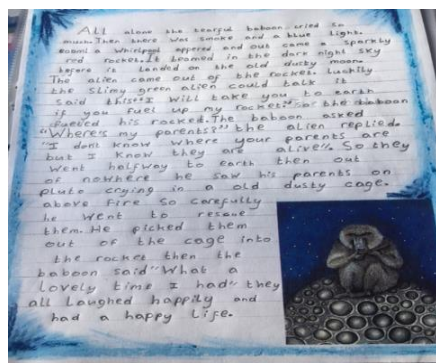 All alone the tearful baboon cried so
much. Then there was smoke and a blue light.
a whirlpool appered and out came a sparkly
red rocket. It beamed in the dark night sky
before it landed on the old dusty moon.
The alien came out of the rocket. Luckily
the slimy green alien could talk it
said this "I will take you to earth
if you fuel up my rocket" so the baboon
fuelled his rocked. The baboon asked
"Where's my parents?" the alien replied.
"I dont know where your parents are
but I know they are alive". So they
went halfway to earth then out
of nowhere he saw his parents on
pluto crying in a old dusty cage.
above fire. So carefully
he went to rescue
them. He picked them
out of the cage into
the rocket then the
baboon said "What a
lovely time I had" they
all laughed happily and
had a happy life.